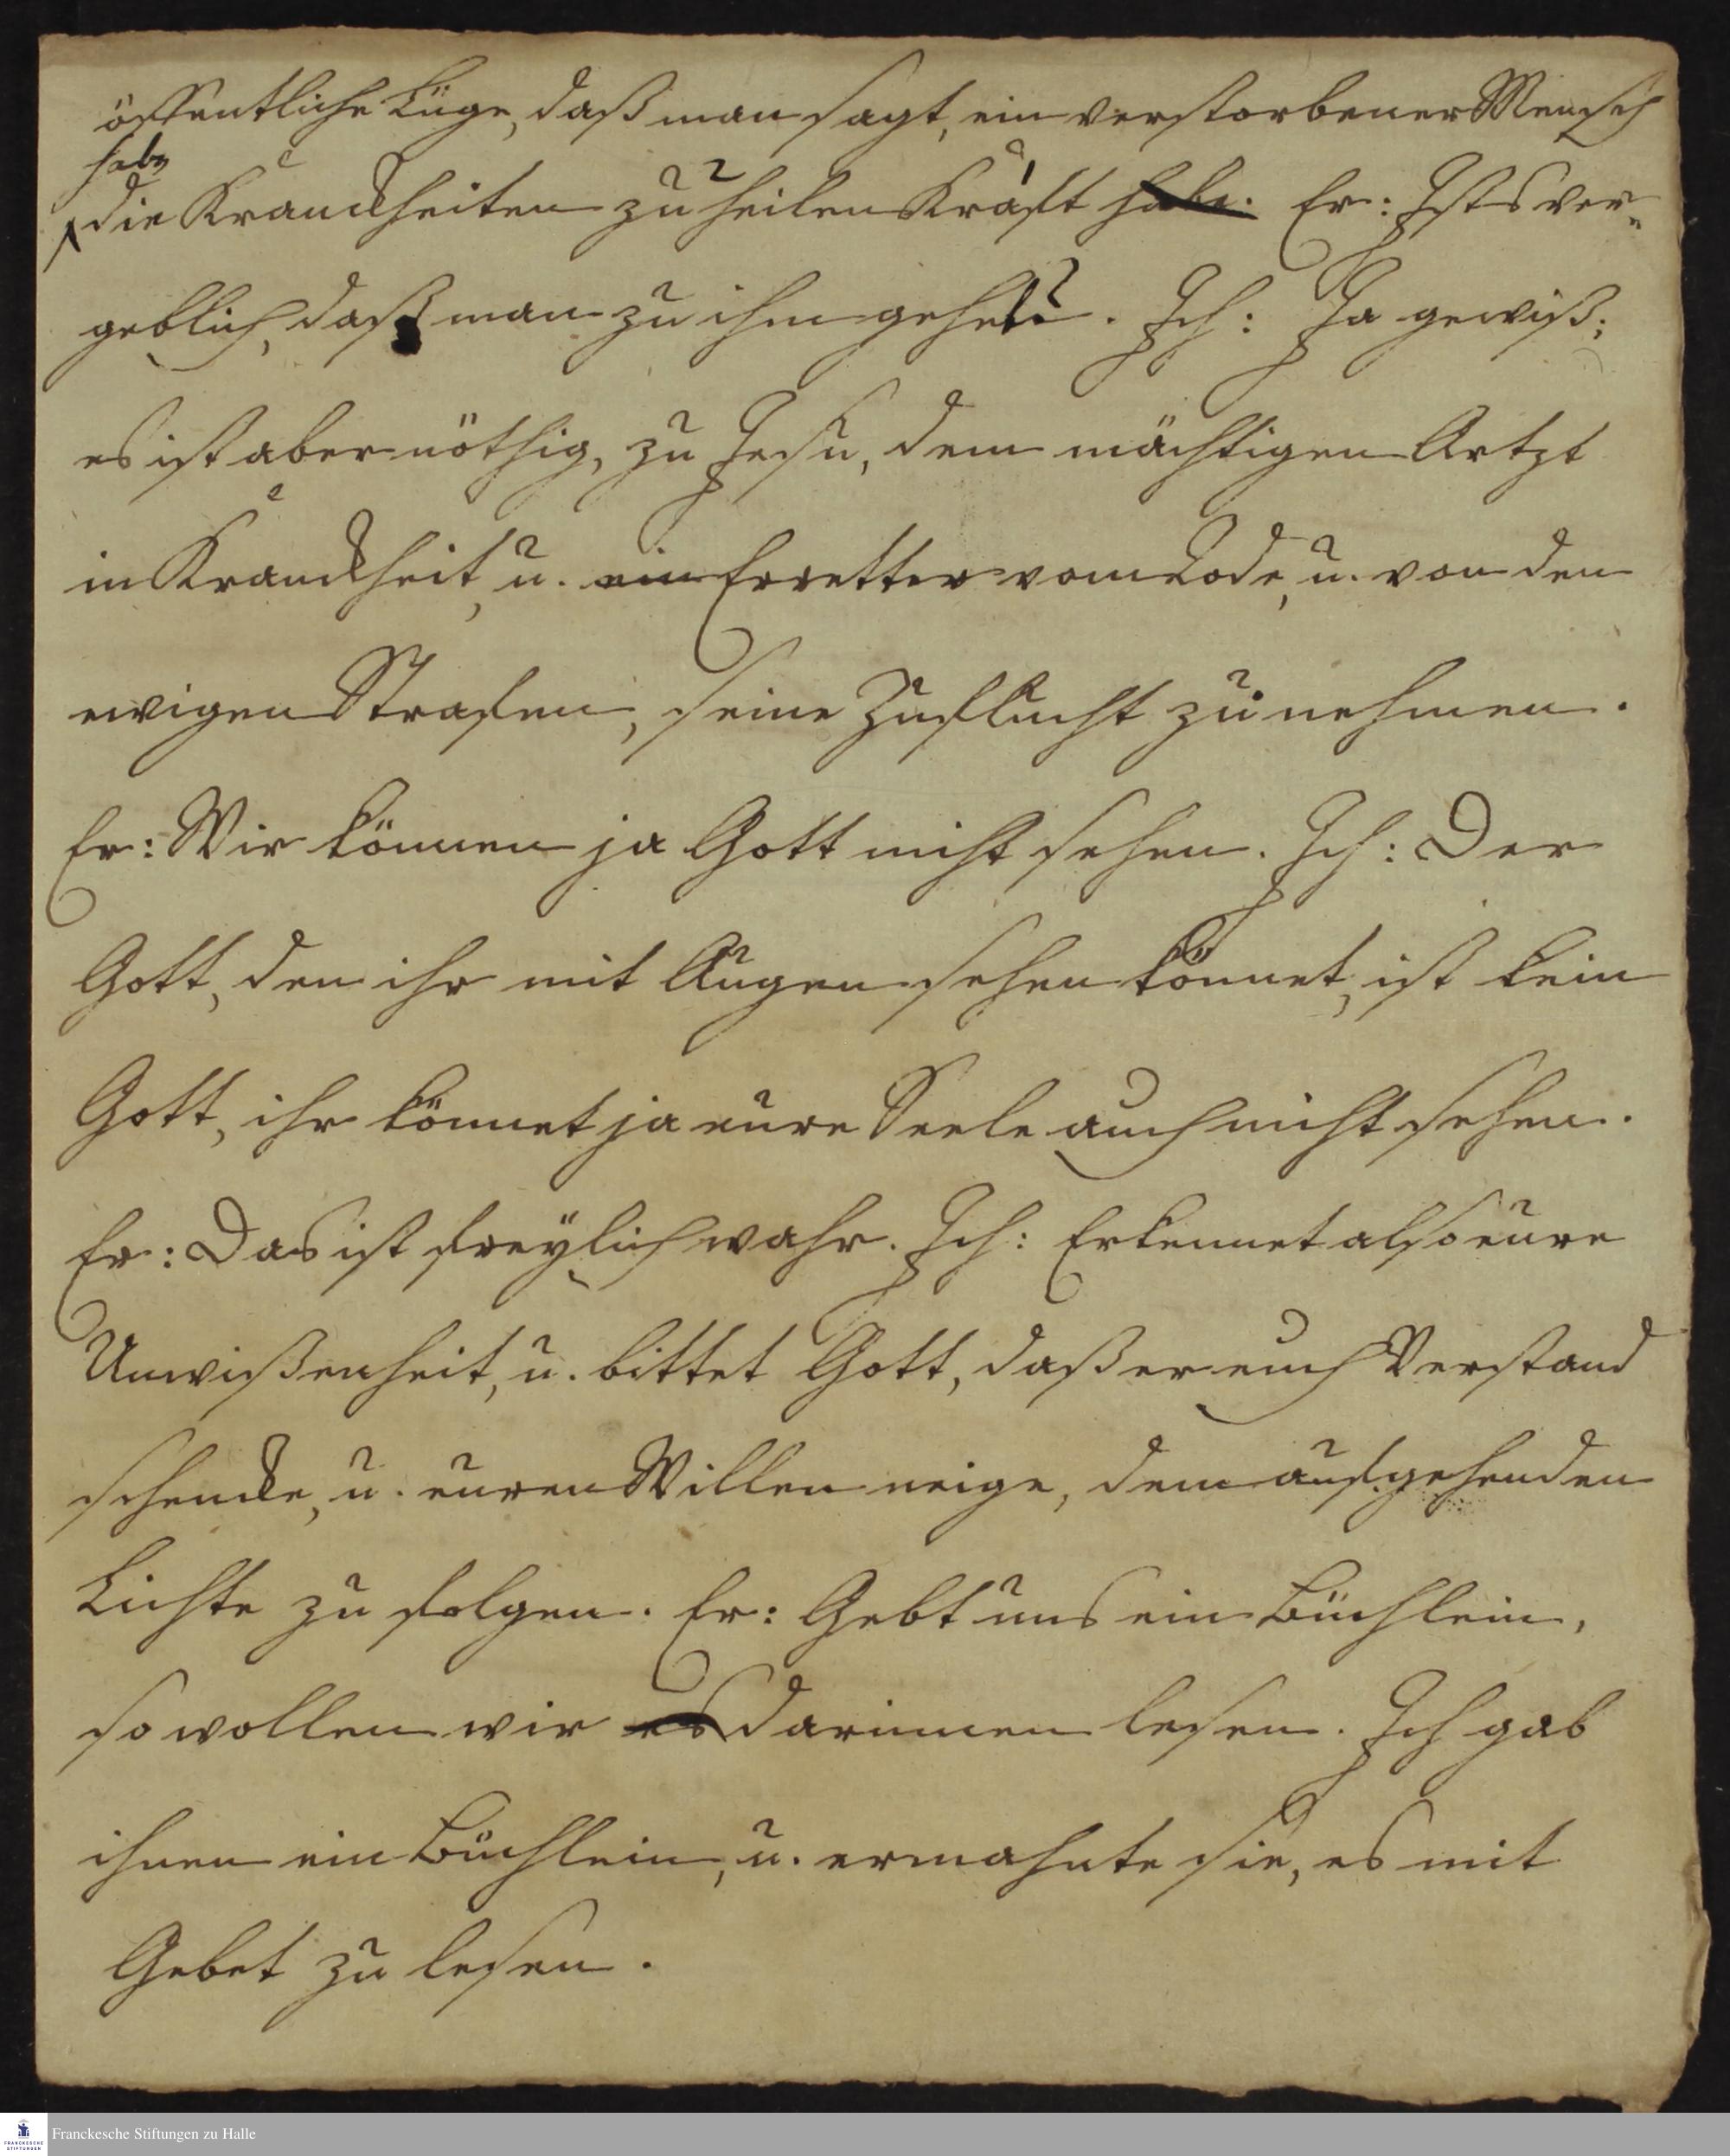 öffentliche Lüge, daß man sagt, ein verstorbener Mensch
habe
die Kranckheiten zu heilen Kraft habe. Er: Ists ver-
geblich, daß man zu ihm gehet. Ich: Ja gewiß;
es ist aber nöthig, zu Jesu, dem mächtigen Artzt
in Kranckheit, u. ein Erretter vom Tode, u. von den
ewigen Strafen, seine Zuflucht zu nehmen.
Er: Wir können ja Gott nicht sehen. Ich: Der
Gott, den ihr mit Augen sehen könnet, ist kein
Gott, ihr könnet ja eure Seele auch nicht sehen.
Er: Das ist freÿlich wahr. Ich: Erkennet also eure
Unwißenheit, u. bittet Gott, daß er euch Verstand
schencke, u. euren Willen neige, dem aufgehenden
Lichte zu folgen. Er: Gebt uns ein Büchlein,
so wollen wir es darinnen lesen. Ich gab
ihnen ein Büchlein, u. ermahnte sie, es mit
Gebet zu lesen.
FRANCKESCHE
STIFTUNGEN
Franckesche Stiftungen zu Halle